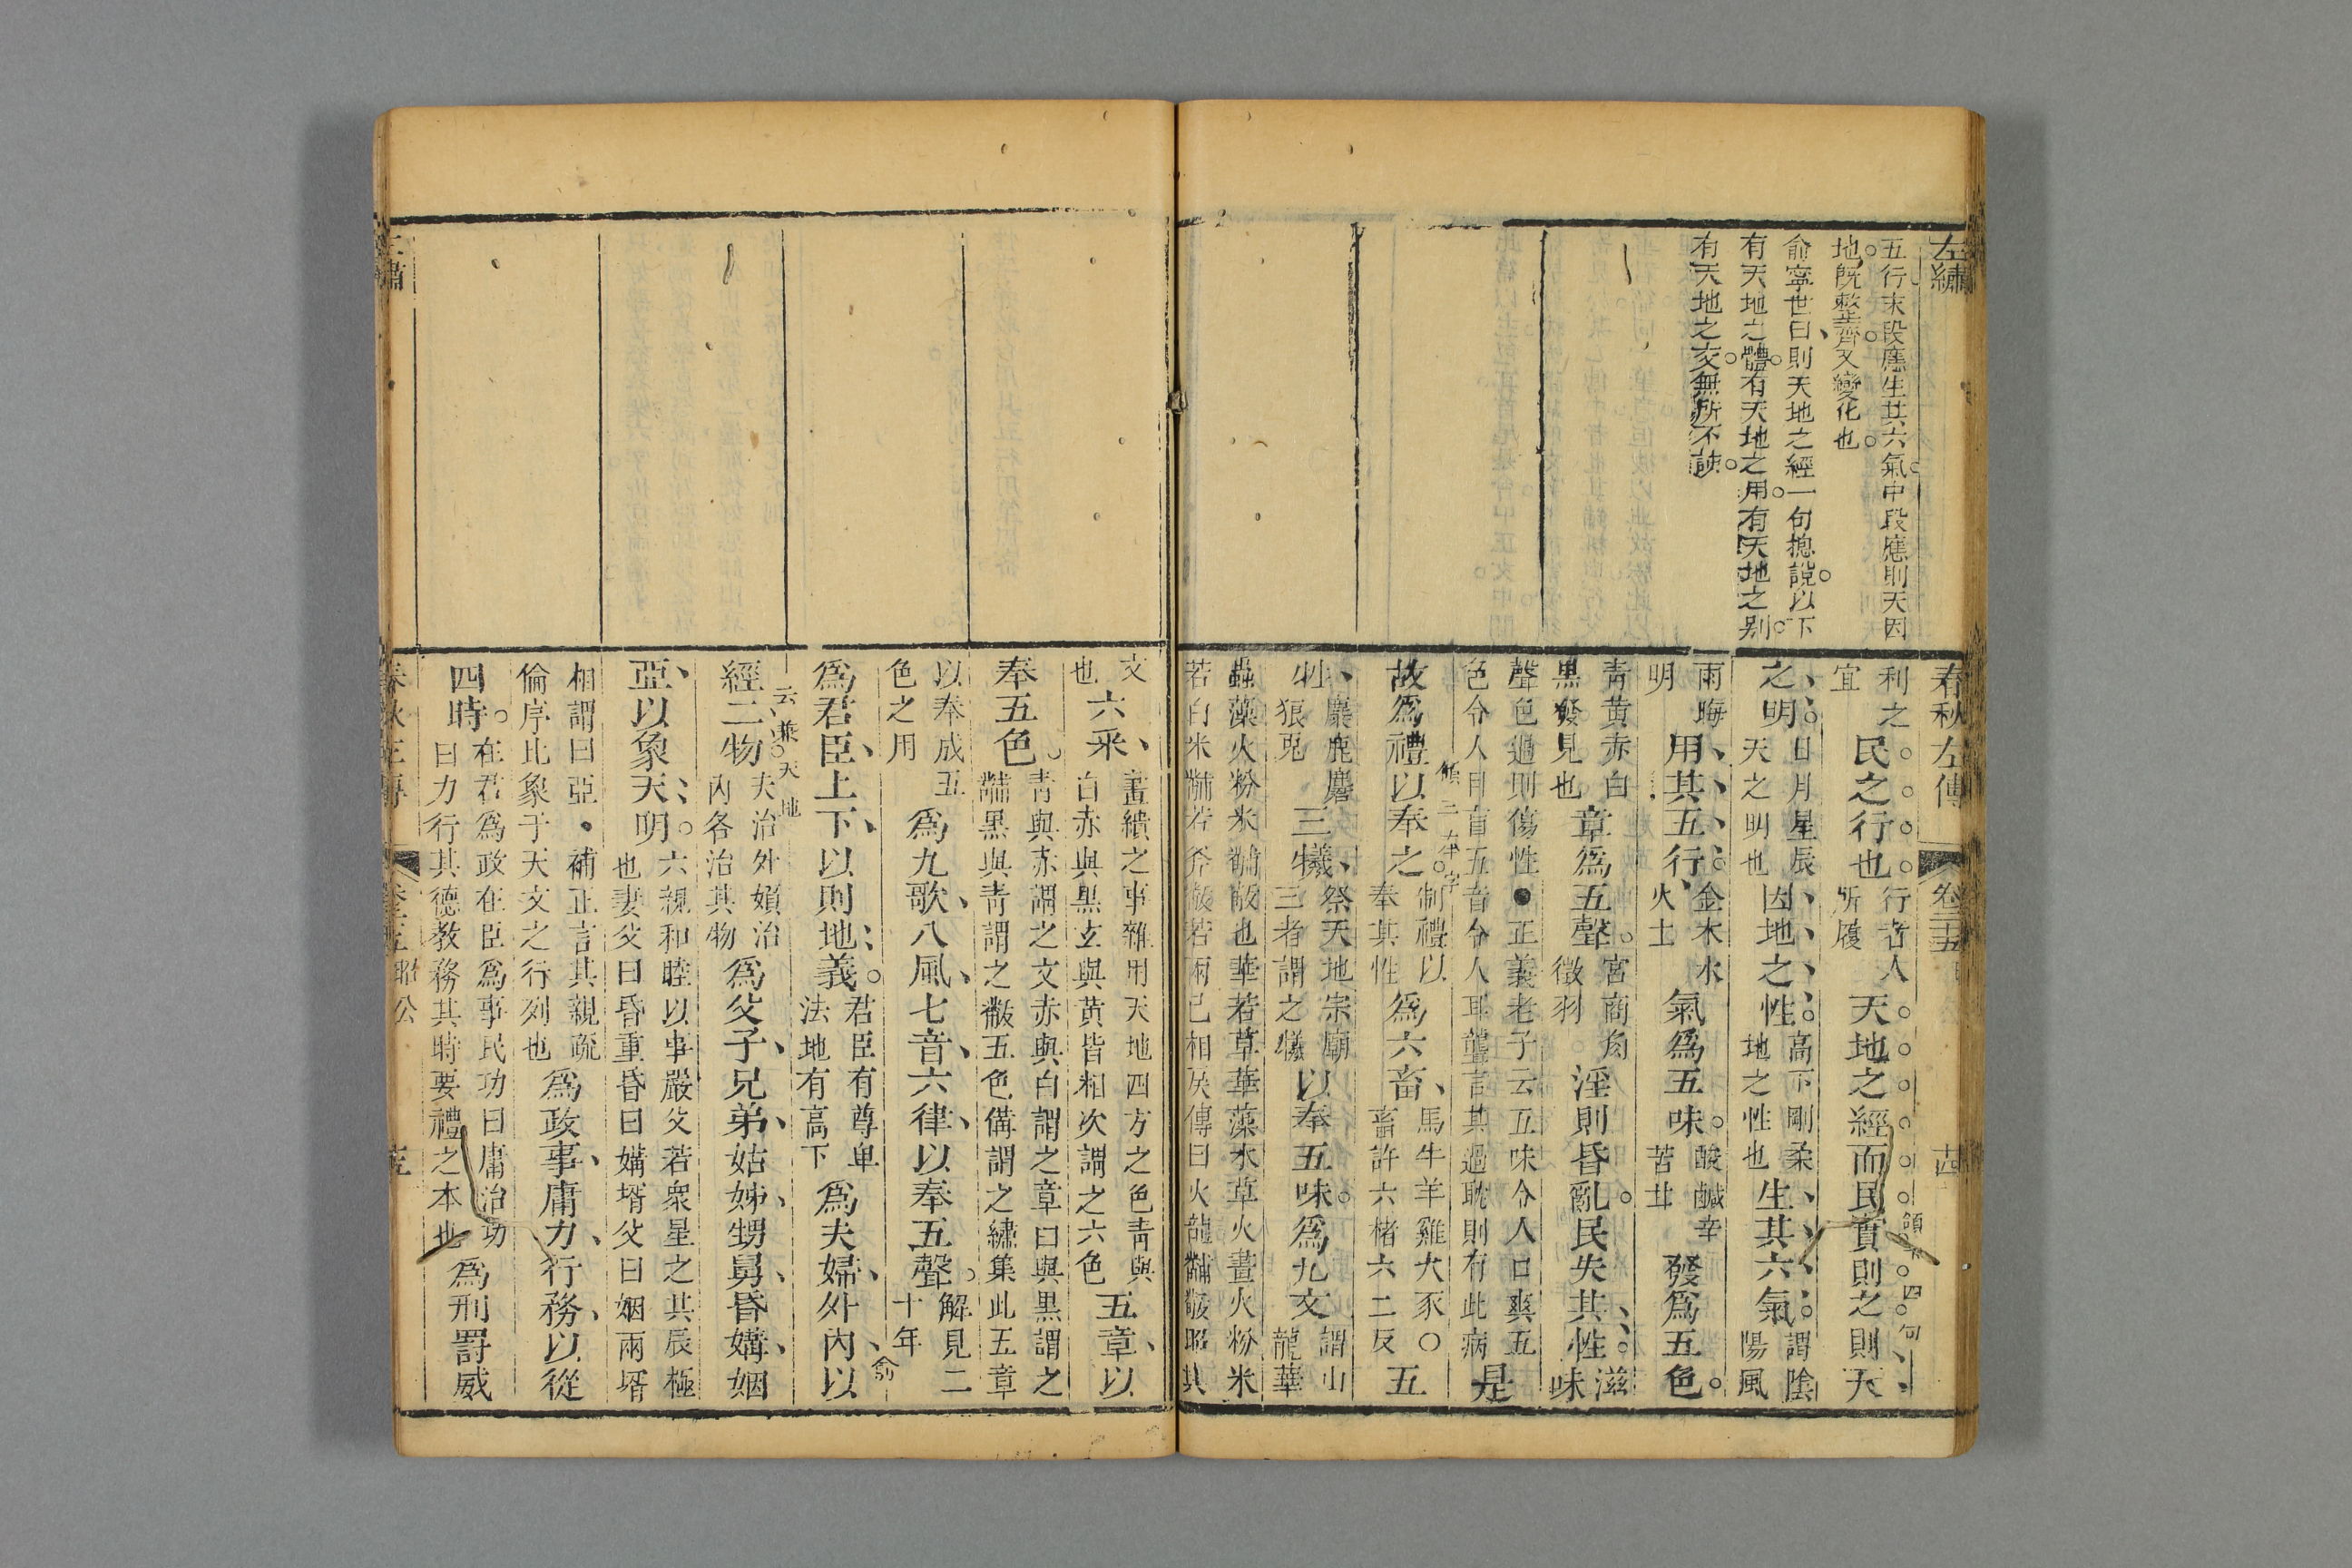 左繡
五行末段應生其六氣中段應則天因
地既整齊又變化也
俞寧世曰則天地之經一句摠說以下
有天地之體有天地之用有天地之別
有天地之交無所不該
春秋左傳 卷二十五 昭 古
利之宜民之行也行者人所履天地之經而民實則之則天
領下四句
之明日月星辰天之明也因地之性高下剛柔地之性也生其六氣謂陰陽風
雨晦明用其五行金木水火土氣為五味酸鹹辛苦甘發為五色
青黃赤白黑發見也章為五聲宮商角徵羽淫則昏亂民失其性滋味
聲色過則傷性●正義老子云五味令人口爽五色令人目盲五音令人耳聾言其過耽則有此病是
故為禮以奉之制禮以奉其性為六畜馬牛羊雞犬豕○畜許六楮六二反五
牲麋鹿麏狼兔三犧祭天地宗廟三者謂之犧以奉五味為九文謂山龍華
蟲藻火粉米黼黻也華若草華藻水草火畫火粉米若白米黼若斧黻若兩己相戾傳曰火龍黼黻昭其
文也六采畫繢之事雜用天地四方之色青與白赤與黑玄與黃皆相次謂之六色五章以
奉五色青與赤謂之文赤與白謂之章白與黑謂之黼黑與青謂之黻五色備謂之繡集此五章
以奉成五色之用為九歌八風七音六律以奉五聲解見二十年
為君臣上下以則地義君臣有尊卑法地有高下為夫婦外內以
俞云兼天地
經二物夫治外婦治內各治其物為父子兄弟姑姊甥舅昏媾姻
亞以象天明六親和睦以事嚴父若衆星之共辰極也妻父曰昏重昏曰媾壻父曰姻兩壻
相謂曰亞・補正言其親疏倫序比象于天文之行列也為政事庸力行務以從
四時在君為政在臣為事民功曰庸治功曰力行其德教務其時要禮之本也為刑罰威